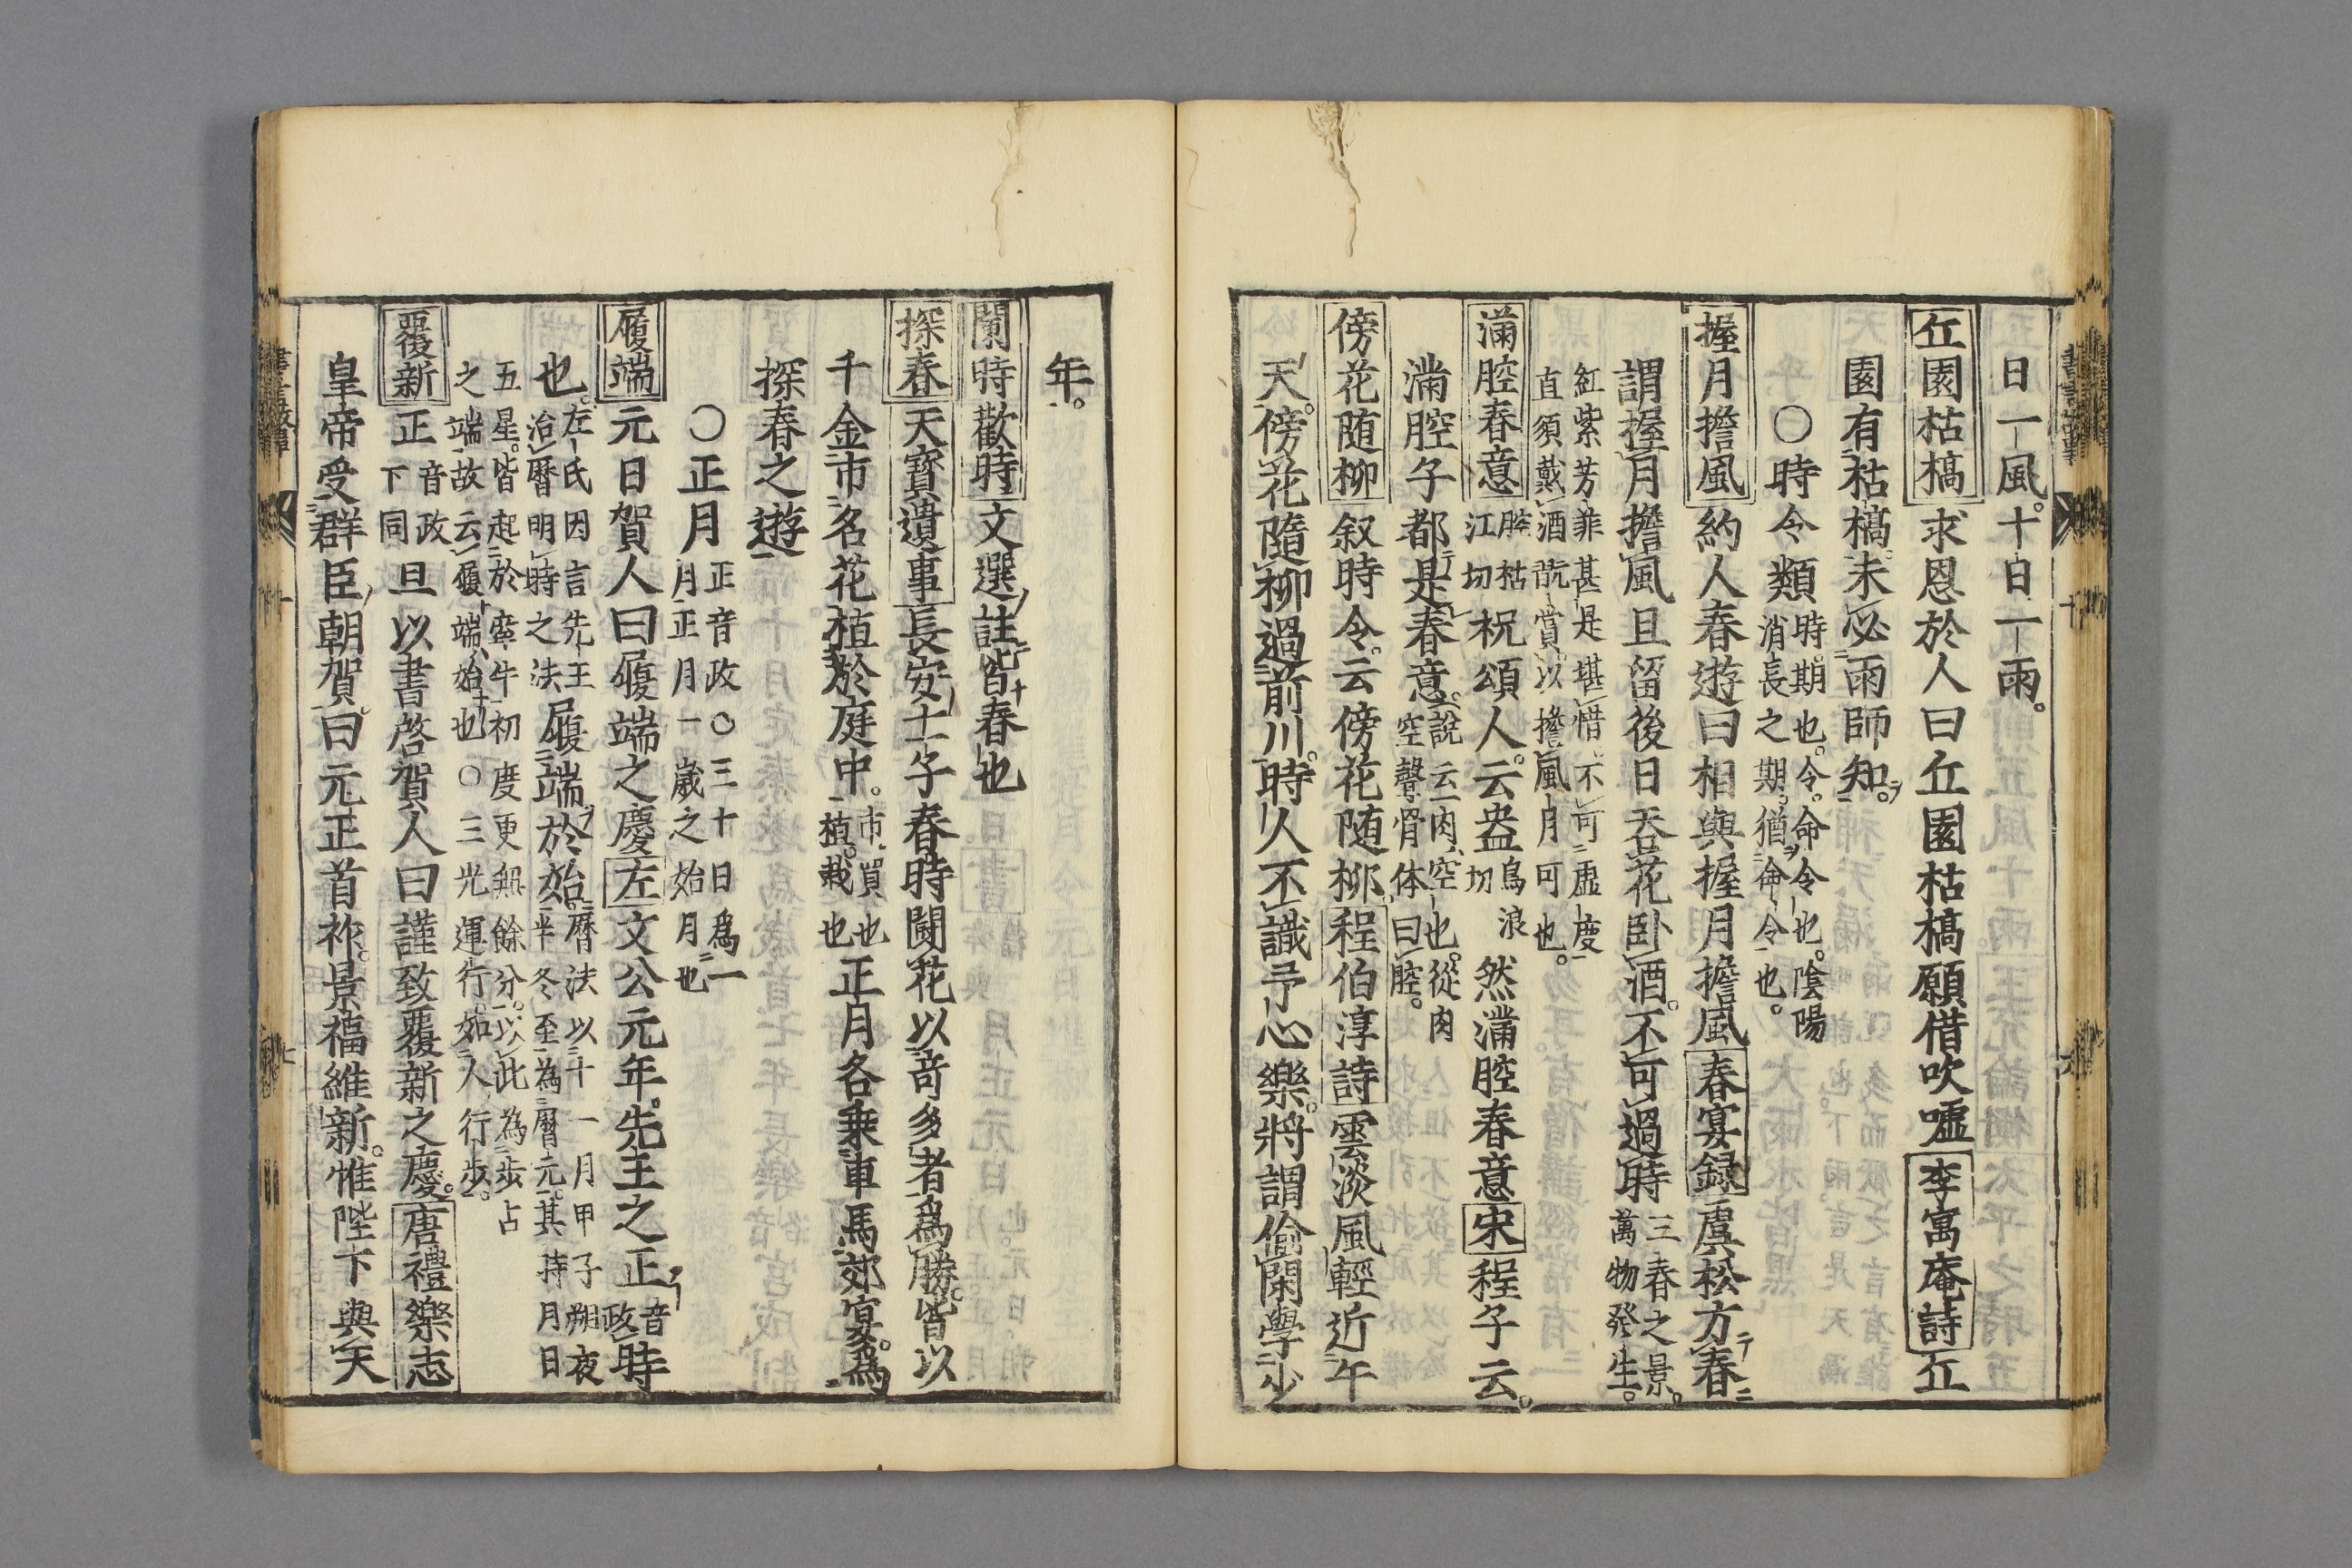 日一風。十日一雨。
丘園枯槁 求恩於人曰丘園枯槁願借吹噓 李寓庵詩 丘
園有枯槁。未必雨師知。
○時令類 時。期也。令。命令也。陰陽
消長之期。猶命令也。
握月擔風 約人春遊曰相與握月擔風 春宴録 虞松方春
謂握月擔風且留後日吞花卧酒。不可過時 三春之景。
萬物發生。
紅紫芳菲甚是堪惜。不可虛度
直須戴酒翫賞。以擔風月可也。
滿腔春意 腔枯
江切 祝頌人。云盎 烏浪
切 然滿腔春意 宋 程子云。
滿腔子都是春意。 說云肉空也。從肉
空聲骨体曰腔。
傍花随柳 叙時令。云傍花随柳 程伯淳詩 雲淡風輕近午
天。傍花隨柳過前川。時人不識予心樂。將謂偷閑學少
年。
闌時歡時 文選註皆春也
探春 天寶遺事 長安士子春時鬪花以奇多者爲勝。皆以
千金市名花植於庭中。 市。買也
植。栽也 正月各乗車馬郊宴。為
探春之遊
○正月 正音政○三十日爲一
月正月一歲之始月也
履端 元日賀人曰履端之慶 左 文公元年。先王之正 音
政 時
也。 左氏因言先王
治曆明時之法 履端於始。 曆法以十一月甲子朔夜
半冬至為曆元。其時月日
五星。皆起於牽牛初度更無餘分。以此為步占
之端故云履端始也○三光運行。如人行步。
覆新 正 音政
下同 旦以書啓賀人曰謹致覆新之慶。 唐禮樂志
皇帝受群臣朝賀。曰元正首祚。景福維新。惟陛下與天